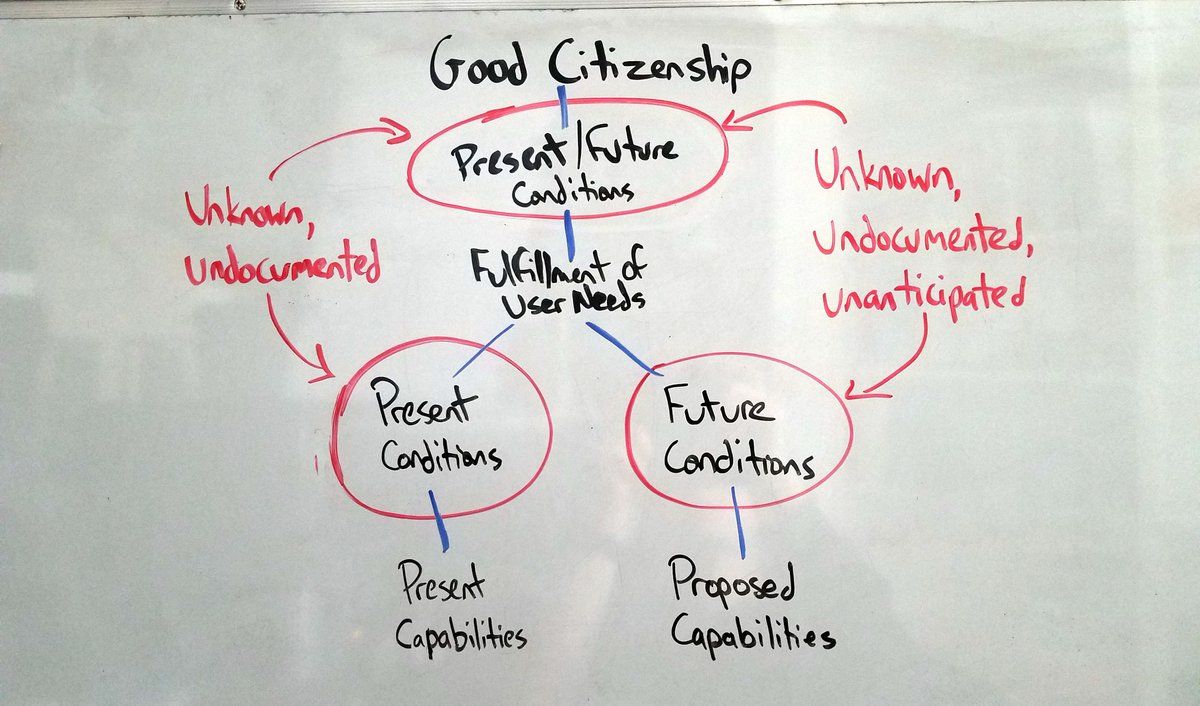 Good Citizenship
Present/Future
Conditions
Unknown,
Undocumented
Unknown,
Undocumented,
unanticipated
Fulfillment of
User Needs
Present
Conditions
Future
Conditions
Present
Capabilities
Proposed
Capabilities